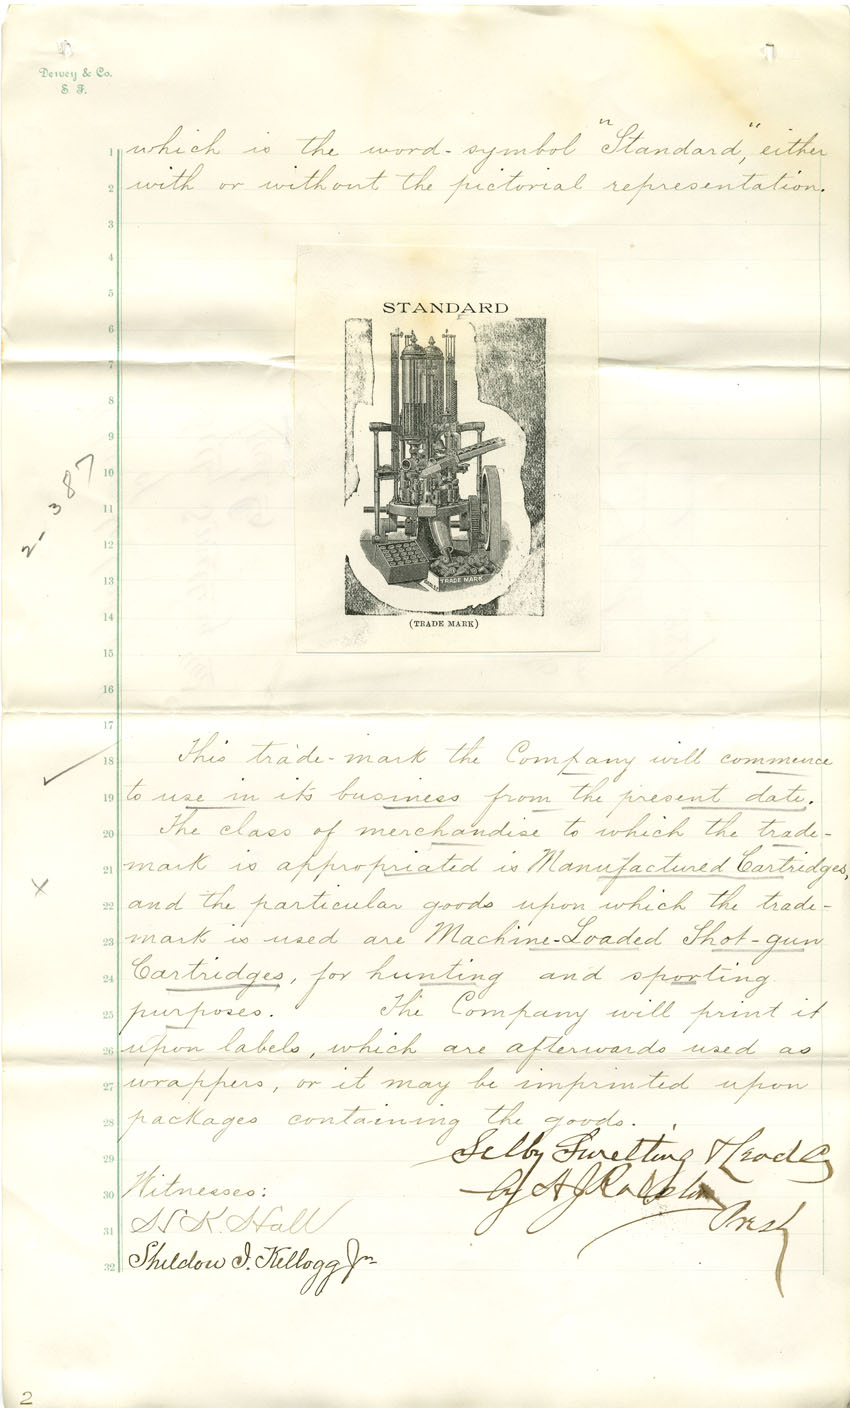 Dewey & Co.
S. F.
1 which is the word-symbol "Standard", either
2 with or without the pictorial representation.
3
4
5
STANDARD
6
7
8
9
2-387
10
11
12
13
TRADE MARK
14
(TRADE MARK)
15
16
17
18 This trade-mark the Company will commence
19 to use in its business from the present date.
20 The class of merchandise to which the trade-
21 mark is appropriated is Manufactured Cartridges,
x
22 and the particular goods upon which the trade-
23 mark is used are Machine-Loaded Shot-gun
24 Cartridges, for hunting and sporting
25 purposes. The Company will print it
26 upon labels, which are afterwards used as
27 wrappers, or it may be imprinted upon
28 packages containing the goods.
29 Selby Smelting & Lead Co
30 Witnesses: by A J Ralston
31 Hall Prest
32 Sheldon I. Kellogg Jr
2